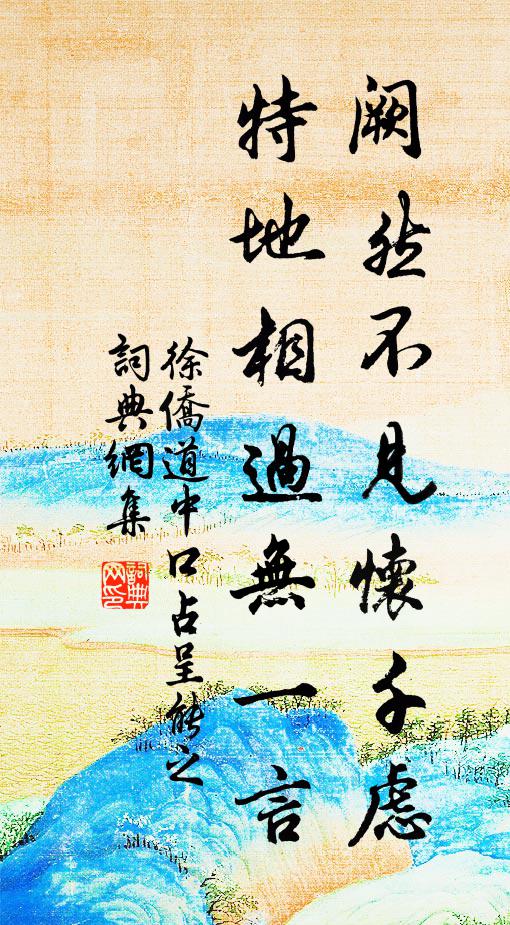 阙然不見懷千慮
特地相過無一言
徐僑道中口占呈能之
詞典網集
詞典
网印